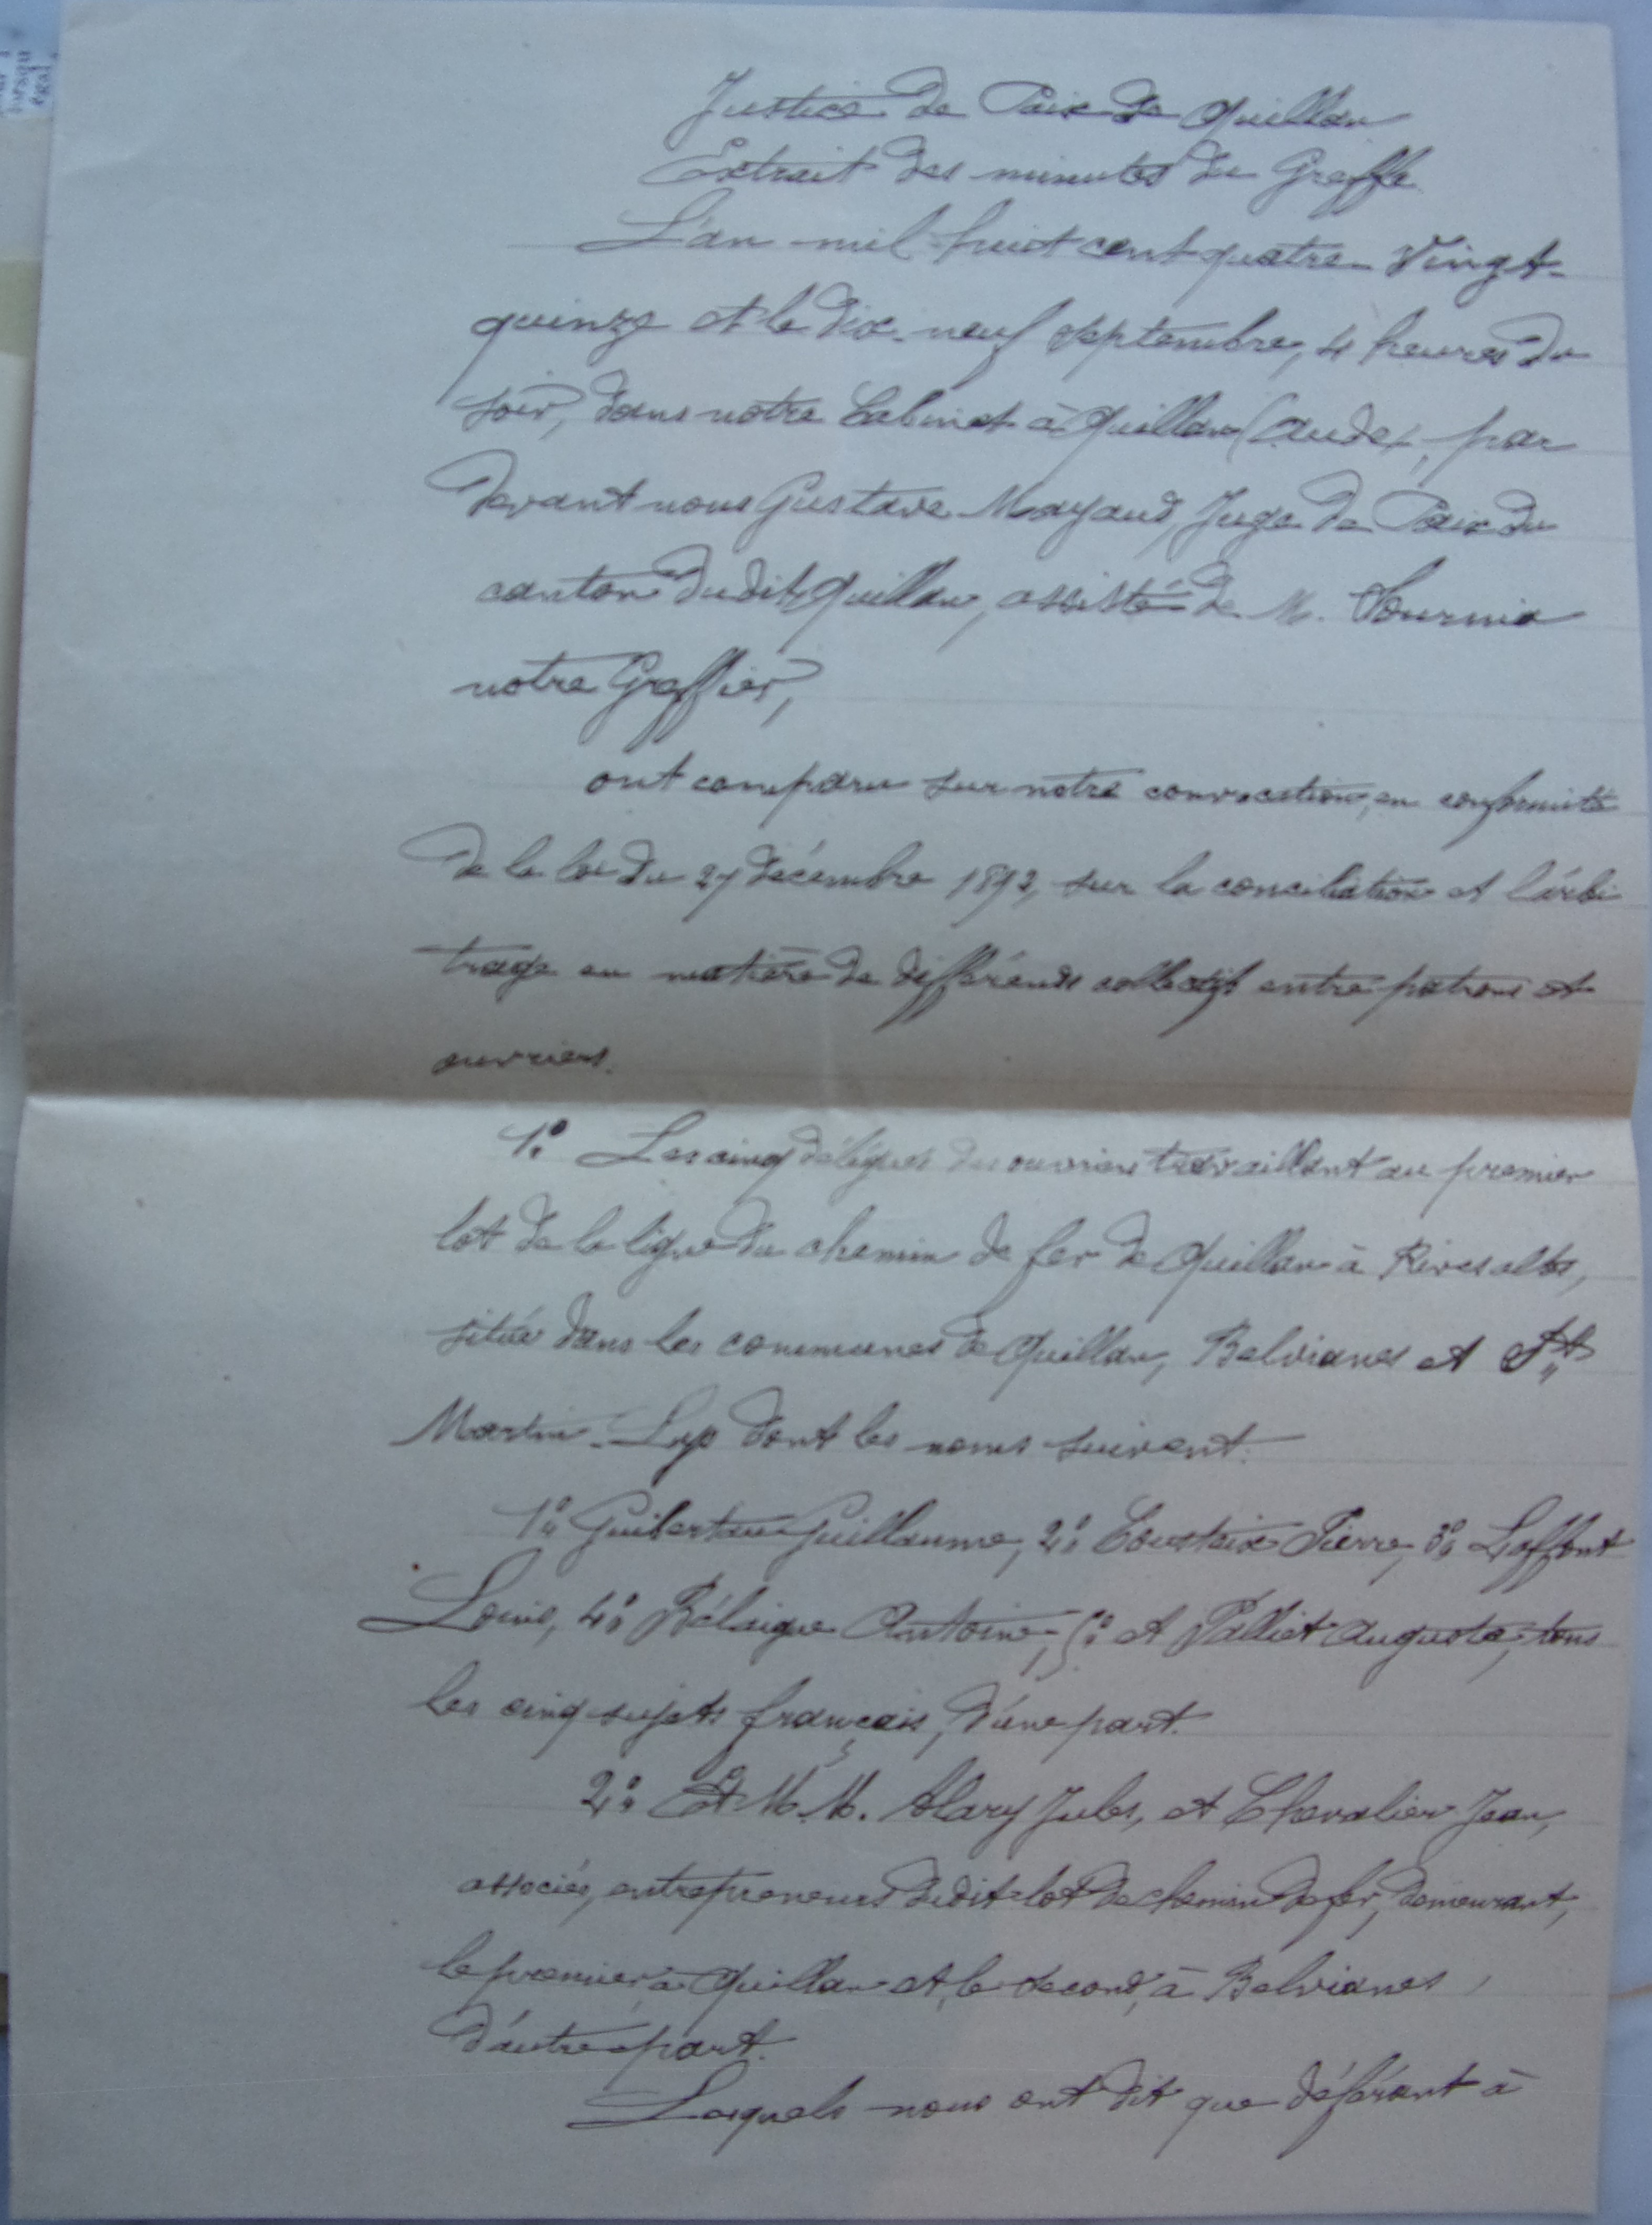 Justice de Paix de Quillan
Extrait des minutes du Greffe
L'an mil huit cent quatre-vingt-
quinze et le dix-neuf septembre, 4 heures du
soir, dans notre Cabinet à Quillan (Aude), par
devant nous Gustave Mayaud, Juge de Paix du
canton dudit Quillan, assisté de M. Sournia
notre Greffier,
ont comparu sur notre convocation, en conformité
de la loi du 27 décembre 1892, sur la conciliation et l'arbi
trage en matière de différends collectifs entre patrons et
ouvriers.
1° Les cinq délégués des ouvriers travaillant au premier
lot de la ligne du chemin de fer de Quillan à Rivesaltes,
située dans les communes de Quillan, Belvianes et St
Martin-Lys dont les noms suivent:
1° Guiberteau Guillaume, 2° Coustaix Pierre, 3° Laffont
Louis, 4° Bélaigue Antoine, 5° et Palliet Auguste, tous
les cinq sujets français, d'une part.
2° Et M.M. Alary Jules, et Chevalier Jean,
associés, entrepreneurs dudit lot de chemin de fer, demeurant,
le premier, à Quillan et, le second, à Belvianes,
d'autre part.
Lesquels nous ont dit que déférant à